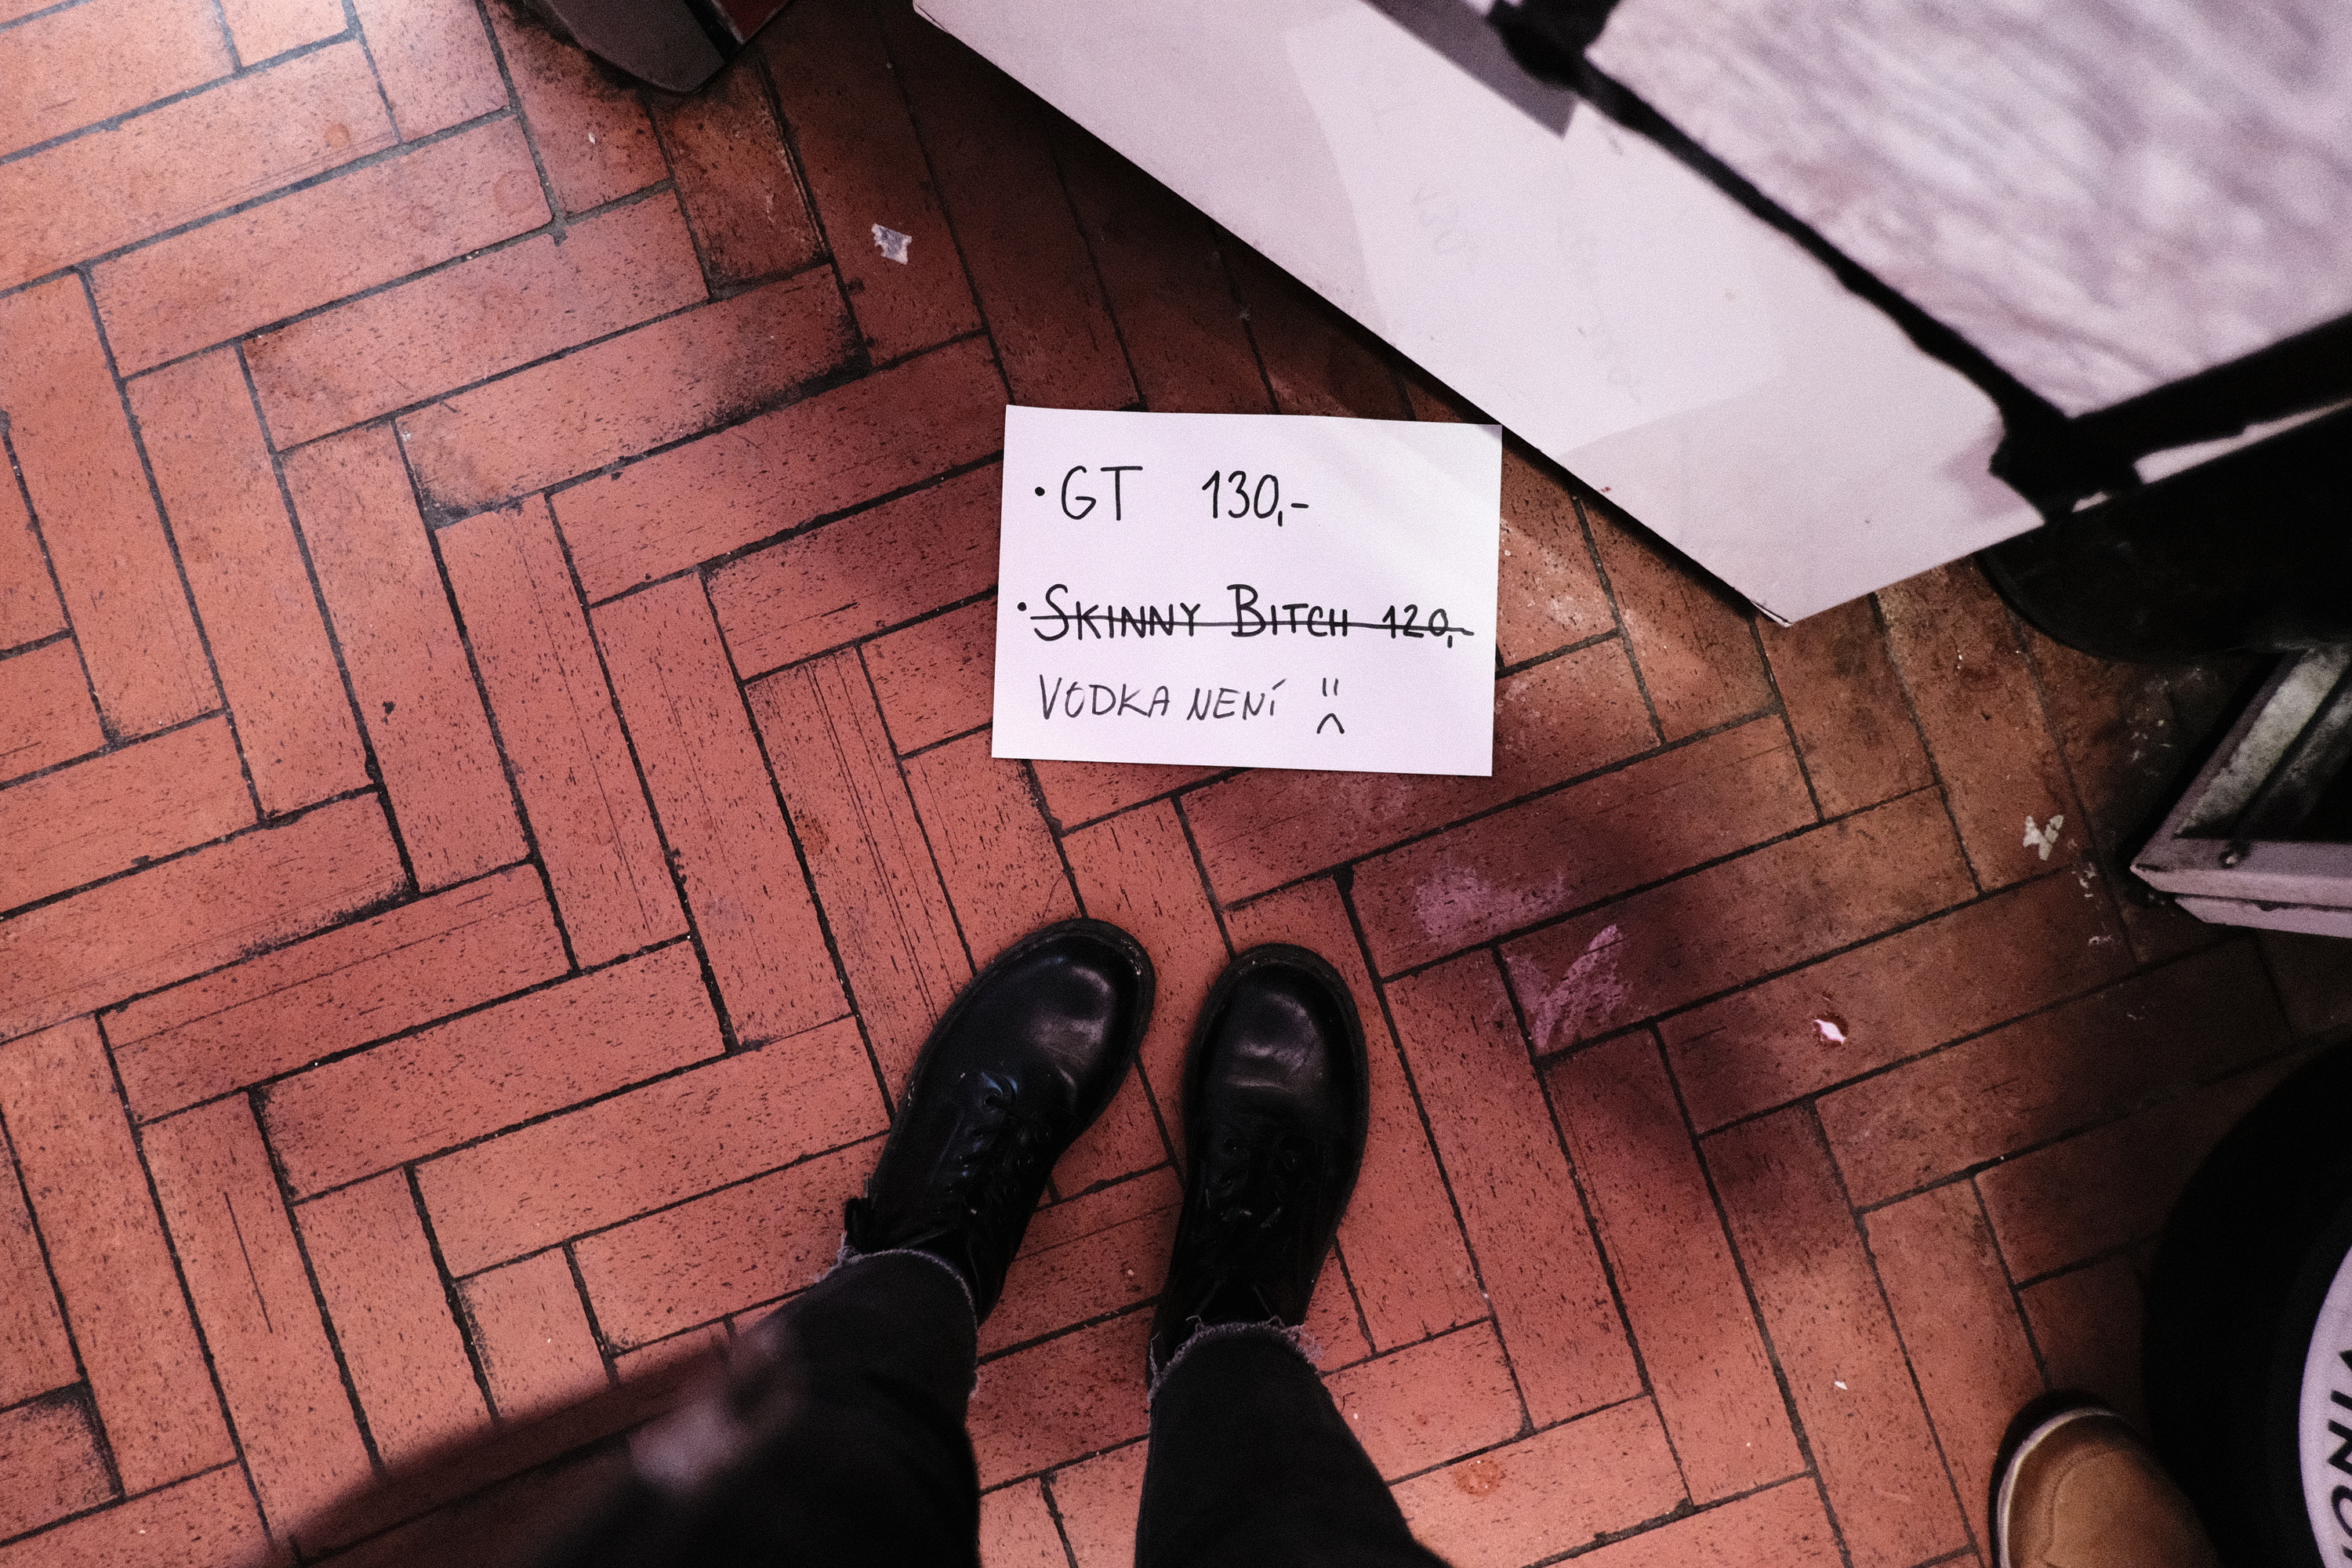 • GT 130,-
• SKINNY BITCH 120,-
VODKA NENÍ